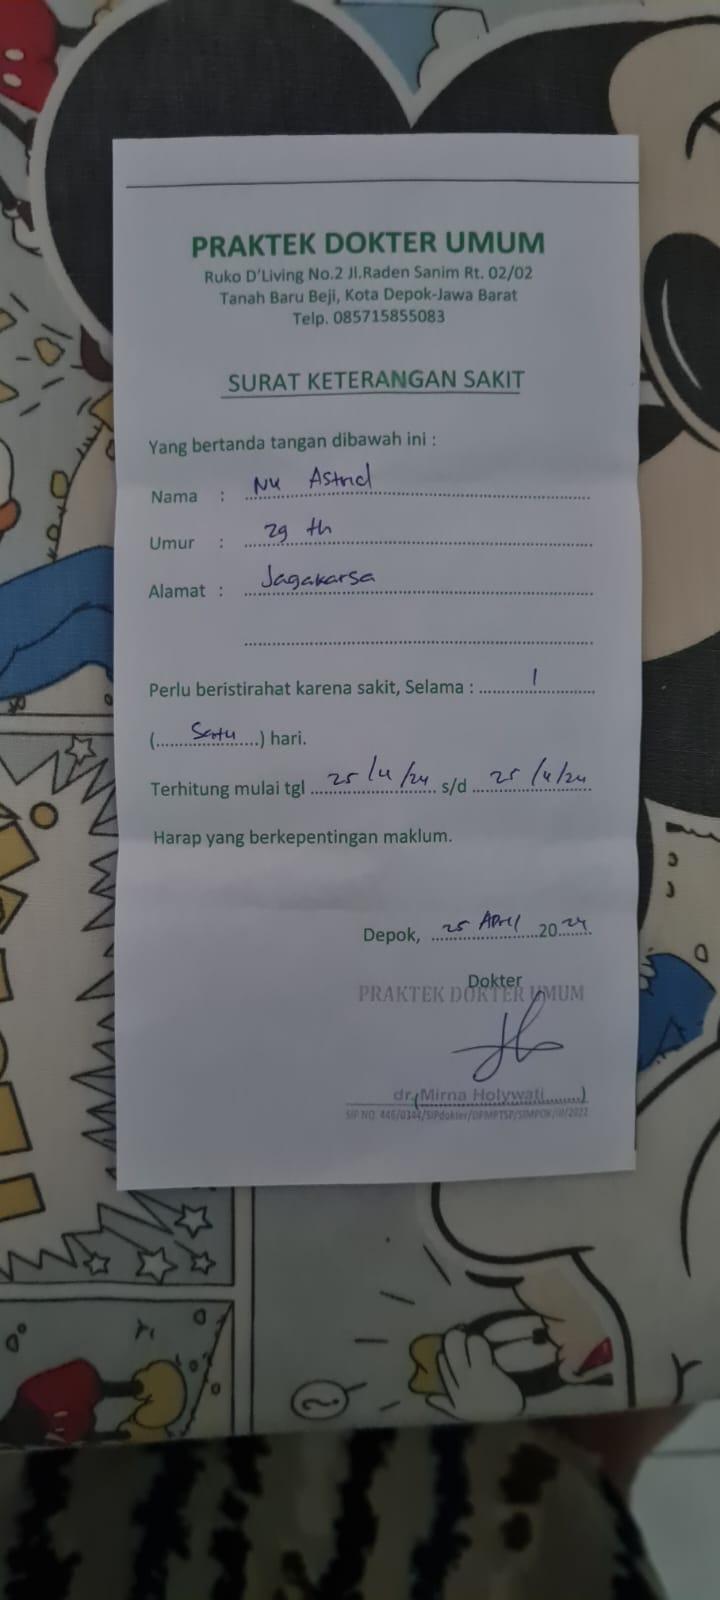 PRAKTEK DOKTER UMUM
Ruko D'Living No.2 Jl.Raden Sanim Rt. 02/02
Tanah Baru Beji, Kota Depok-Jawa Barat
Telp. 085715855083
SURAT KETERANGAN SAKIT
Yang bertanda tangan dibawah ini :
Nama : Astrid
Umur : 29 th
Alamat : Jagakarsa
Perlu beristirahat karena sakit, Selama : 1
(Satu) hari.
Terhitung mulai tgl 25/4/24 s/d 25/4/24
Harap yang berkepentingan maklum.
Depok, 25 April 2024
Dokter
PRAKTEK DOKTER UMUM
dr. (Mirna Holywati)
SIP NO.